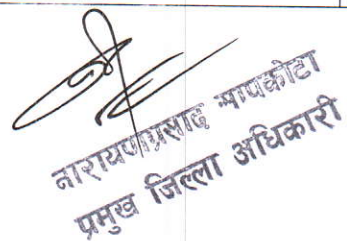 नारायणप्रसाद सापकोटा
प्रमुख जिल्ला अधिकारी